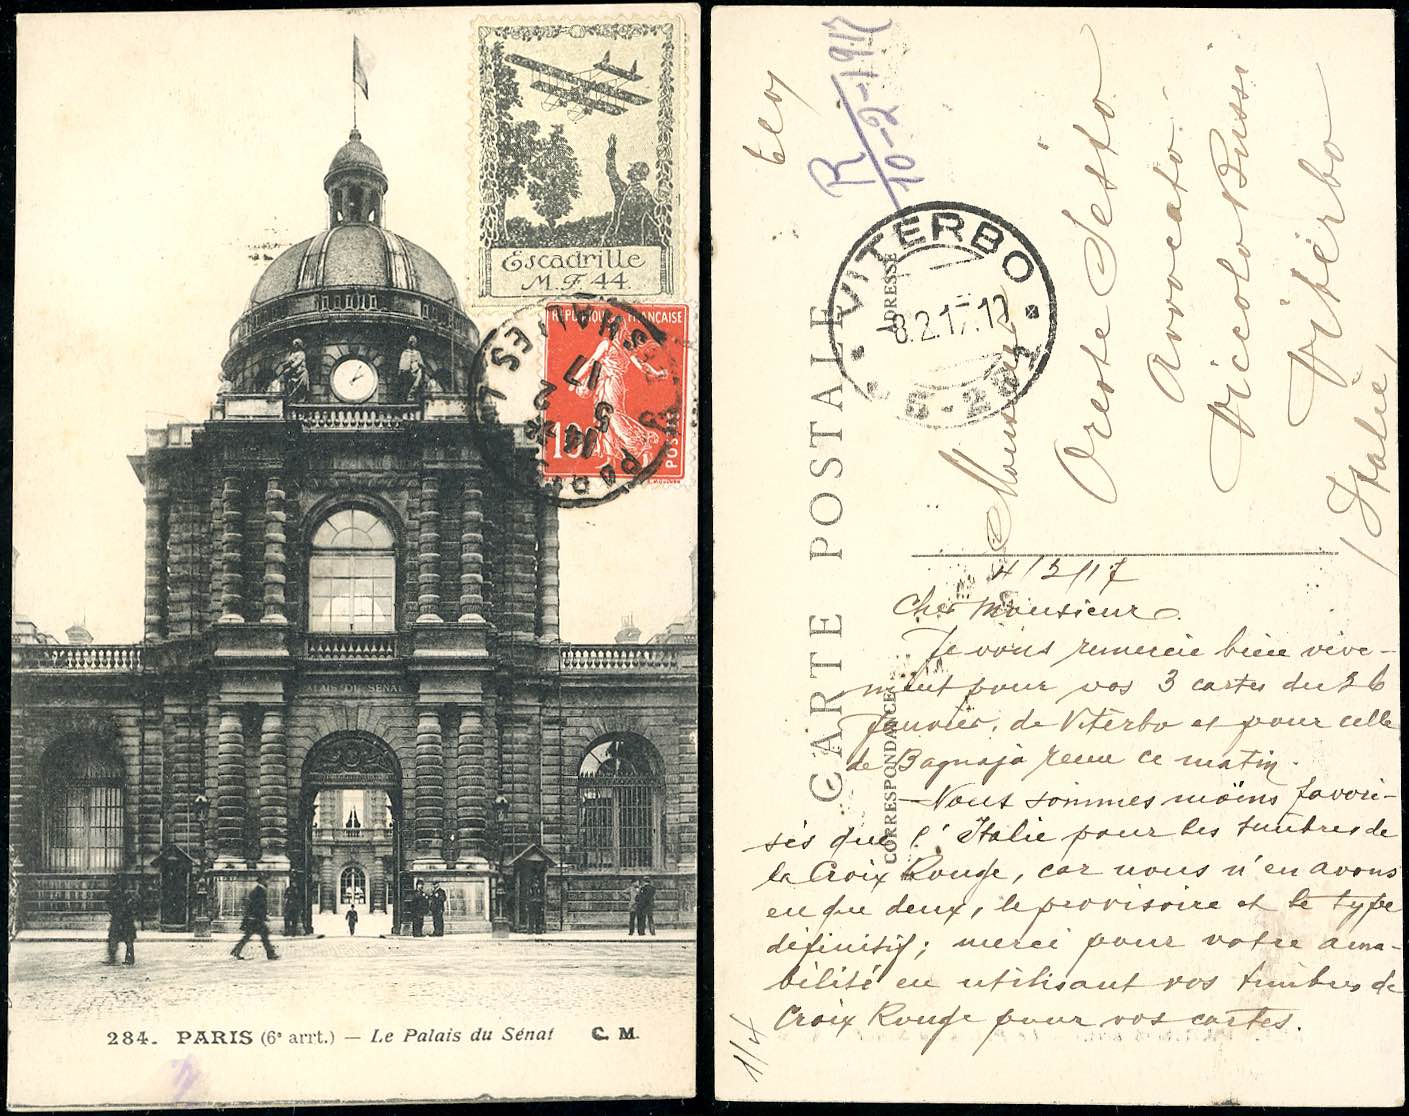 Escadrille
M. F. 44.
REPUBLIQUE FRANÇAISE
10
POSTES
PARIS
14
5 2
17
PALAIS DU SENAT
284. PARIS (6e arrt.) — Le Palais du Sénat C. M.
R
10-2-1917
VITERBO
8.2.17.12
CARTE POSTALE
ADRESSE
CORRESPONDANCE
Monsieur
Oreste Sesto
Avvocato
Vicolo Bussi
Viterbo
Italie
4/2/17
Cher Monsieur.
Je vous remercie bien vive-
ment pour vos 3 cartes du 26
Janvier, de Viterbo et pour celle
de Bagnaja reçue ce matin.
—Nous sommes moins favori-
sés que l'Italie pour les timbres de
la Croix Rouge, car nous n'en avons
eu que deux, le provisoire et le type
définitif; merci pour votre ama-
bilité en utilisant vos timbres de
Croix Rouge pour vos cartes.
1/4